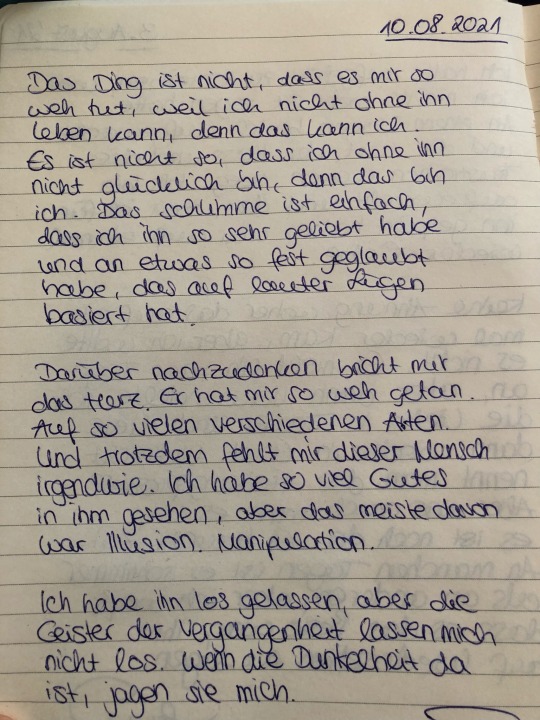 10.08.2021
Das Ding ist nicht, dass es mir so
weh tut, weil ich nicht ohne ihn
leben kann, denn das kann ich.
Es ist nicht so, dass ich ohne ihn
nicht glücklich bin, denn das bin
ich. Das schlimme ist einfach,
dass ich ihn so sehr geliebt habe
und an etwas so fest geglaubt
habe, das auf lauter Lügen
basiert hat.
Darüber nachzudenken bricht mir
das Herz. Er hat mir so weh getan.
Auf so vielen verschiedenen Arten.
Und trotzdem fehlt mir dieser Mensch
irgendwie. Ich habe so viel Gutes
in ihm gesehen, aber das meiste davon
war Illusion. Manipulation.
Ich habe ihn los gelassen, aber die
Geister der Vergangenheit lassen mich
nicht los. Wenn die Dunkelheit da
ist, jagen sie mich.